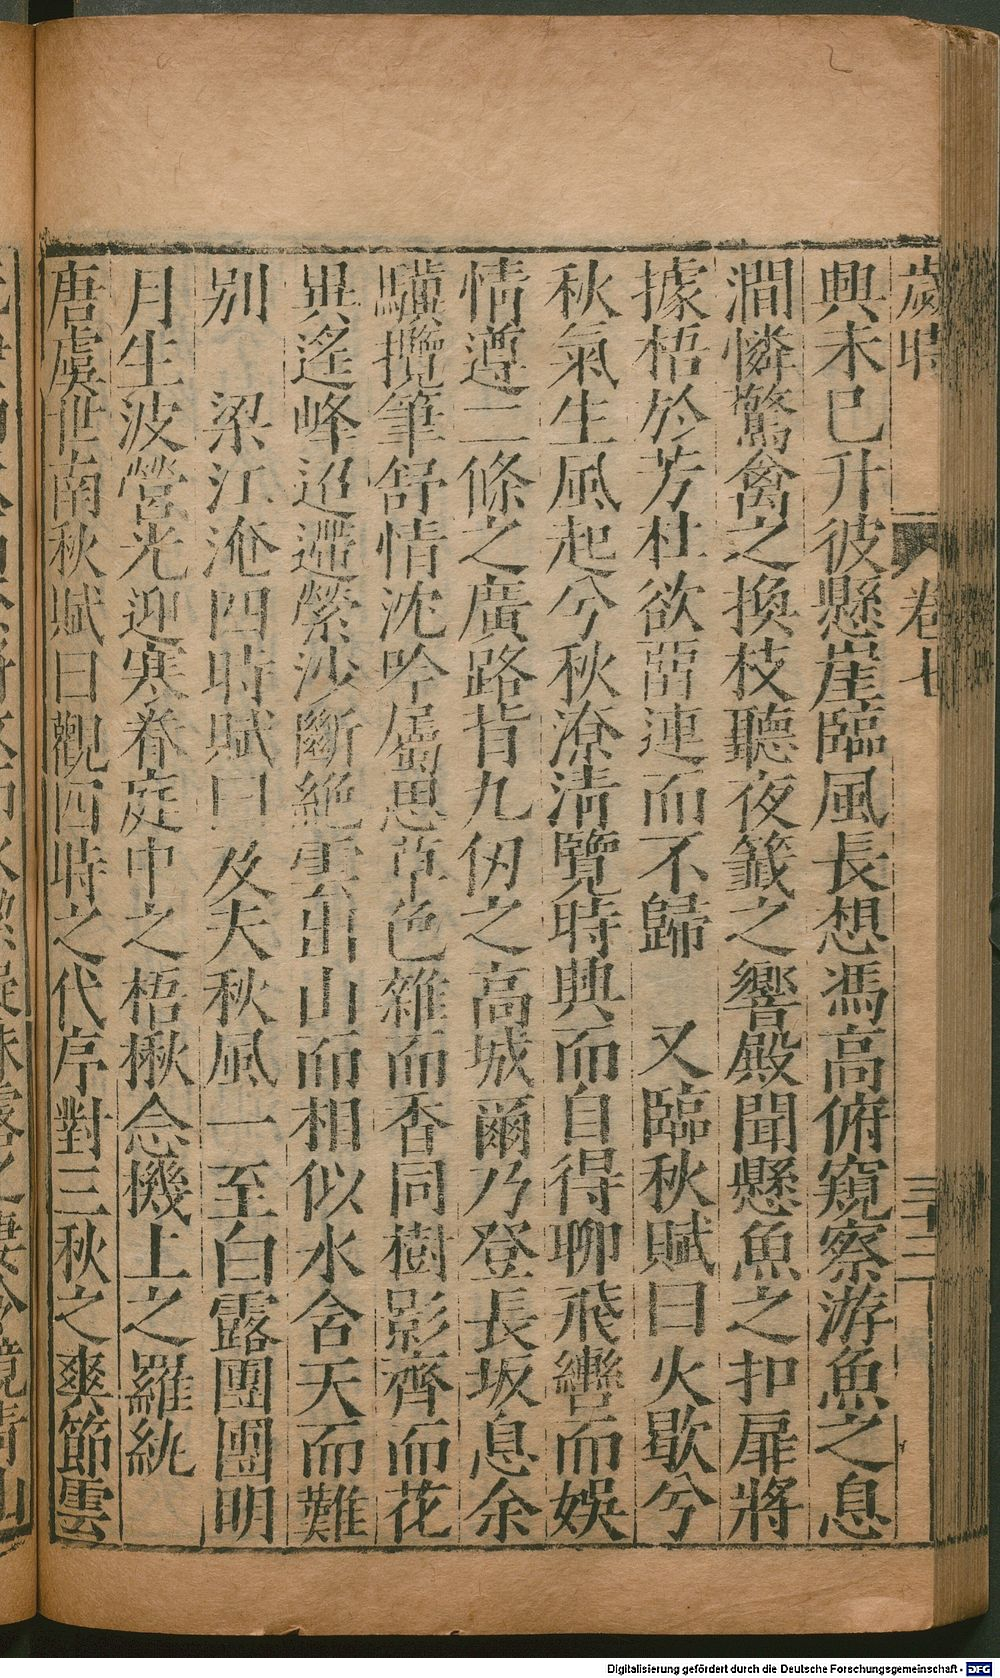 歲時
卷七
三十二
興未已升彼懸崖臨風長想馮高俯窺察游魚之息
澗憐驚禽之換枝聽夜籤之響殿聞懸魚之扣扉將
據梧於芳杜欲留連而不歸　又臨秋賦曰火歇兮
秋氣生風起兮秋潦清覽時興而自得聊飛轡而娛
情遵二條之廣路背九仞之高城爾乃登長坂息余
驥攬筆舒情沈吟屬思草色雜而香同樹影齊而花
異遙峰迢遰縈沙斷絕雲出山而相似水含天而難
別　梁江淹四時賦曰及夫秋風一至白露團團明
月生波螢光迎寒眷庭中之梧楸念機上之羅紈
唐虞世南秋賦曰觀四時之代序對三秋之爽節雲
Digitalisierung gefördert durch die Deutsche Forschungsgemeinschaft - DFG